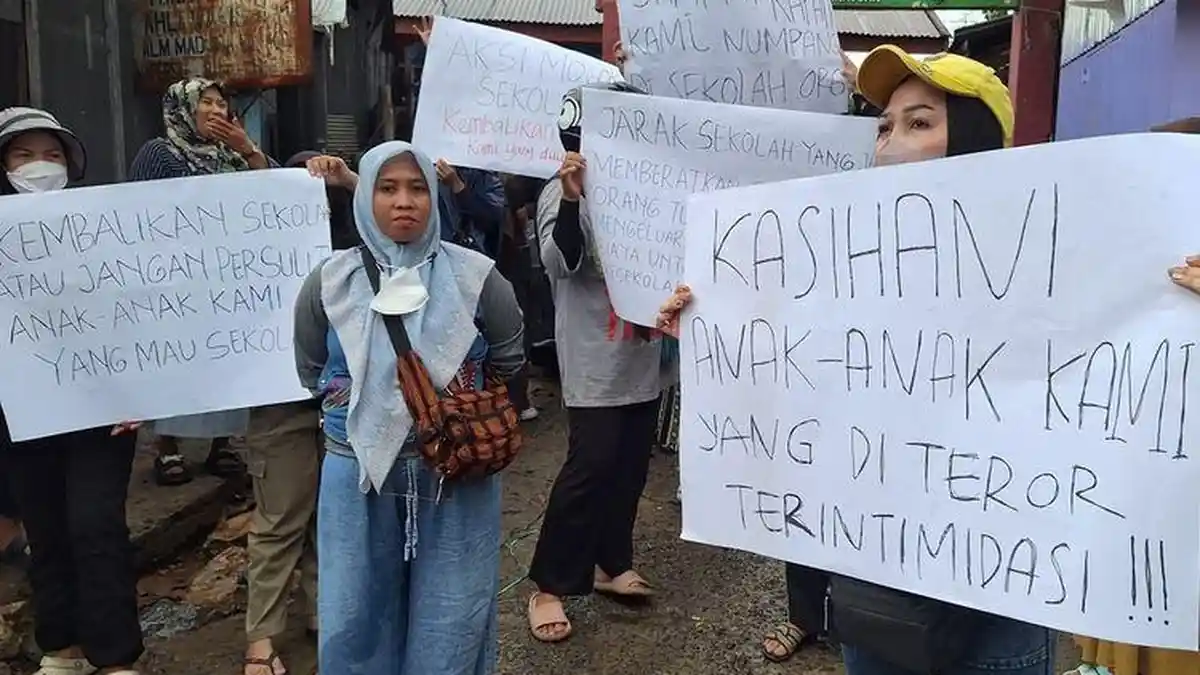 KEMBALIKAN SEKOLA
ATAU JANGAN PERSULIT
ANAK-ANAK KAMI
YANG MAU SEKOL
AKSI
SEKOL
Kembalikan
Kami yang
KAMI NUMPANG
DI SEKOLAH ORG
JARAK SEKOLAH YANG
MEMBERATKAN
ORANG T
MENGELUAR
BIAYA UNT
KASIHANI
ANAK-ANAK KAMI
YANG DI TEROR
TERINTIMIDASI !!!